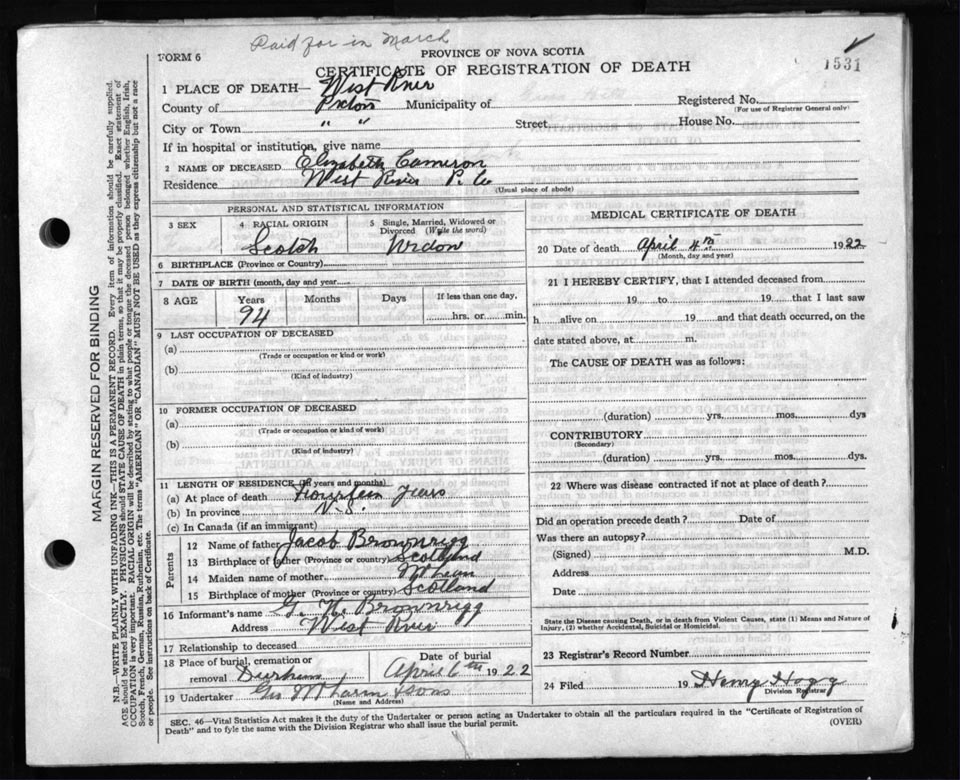 Paid for in March
FORM 6
PROVINCE OF NOVA SCOTIA
CERTIFICATE OF REGISTRATION OF DEATH
1531
1 PLACE OF DEATH— West River
County of Pictou Municipality of Registered No.
(For use of Registrar General only)
City or Town " " Street, House No.
If in hospital or institution, give name
2 NAME OF DECEASED Elizabeth Cameron
Residence West River P. Co
(Usual place of abode)
PERSONAL AND STATISTICAL INFORMATION
3 SEX 4 RACIAL ORIGIN 5 Single, Married, Widowed or Divorced (Write the word)
Scotch Widow
6 BIRTHPLACE (Province or Country)
7 DATE OF BIRTH (month, day and year)
8 AGE Years Months Days If less than one day,
94 hrs. or min.
9 LAST OCCUPATION OF DECEASED
(a)
(Trade or occupation or kind or work)
(b)
(Kind of industry)
10 FORMER OCCUPATION OF DECEASED
(a)
(Trade or occupation or kind or work)
(b)
(Kind of industry)
11 LENGTH OF RESIDENCE (in years and months)
(a) At place of death Fourteen Years
(b) In province N.S.
(c) In Canada (if an immigrant)
Parents
12 Name of father Jacob Brownrigg
13 Birthplace of father (Province or country) Scotland
14 Maiden name of mother McLean
15 Birthplace of mother (Province or country) Scotland
16 Informant's name G. W. Brownrigg
Address West River
17 Relationship to deceased
18 Place of burial, cremation or removal Durham Date of burial April 6th 1922
19 Undertaker & Sons
(Name and Address)
MEDICAL CERTIFICATE OF DEATH
20 Date of death April 4th 1922
(Month, day and year)
21 I HEREBY CERTIFY, that I attended deceased from
19 to 19 that I last saw
h alive on 19 and that death occurred, on the
date stated above, at m.
The CAUSE OF DEATH was as follows:
(duration) yrs. mos. dys
CONTRIBUTORY
(Secondary)
(duration) yrs. mos. dys.
22 Where was disease contracted if not at place of death?
Did an operation precede death? Date of
Was there an autopsy?
(Signed) M.D.
Address
Date
State the Disease causing Death, or in death from Violent Causes, state (1) Means and Nature of
Injury, (2) whether Accidental, Suicidal or Homicidal.
23 Registrar's Record Number
24 Filed 19 Henry Hogg
Division Registrar
SEC. 46—Vital Statistics Act makes it the duty of the Undertaker or person acting as Undertaker to obtain all the particulars required in the "Certificate of Registration of
Death" and to fyle the same with the Division Registrar who shall issue the burial permit.
(OVER)
MARGIN RESERVED FOR BINDING
N.B.—WRITE PLAINLY WITH UNFADING INK—THIS IS A PERMANENT RECORD. Every item of information should be carefully supplied.
AGE should be stated EXACTLY. PHYSICIANS should STATE CAUSE OF DEATH in plain terms, so that it may be properly classified. Exact statement of
OCCUPATION is very important. RACIAL ORIGIN will be described by stating to what people or tongue the deceased person belonged, whether English, Irish,
Scotch, French, German, Russian, Ruthenian, etc. The terms "AMERICAN" OR "CANADIAN" MUST NOT BE USED as they express citizenship but not a race
or people. See instructions on back of Certificate.